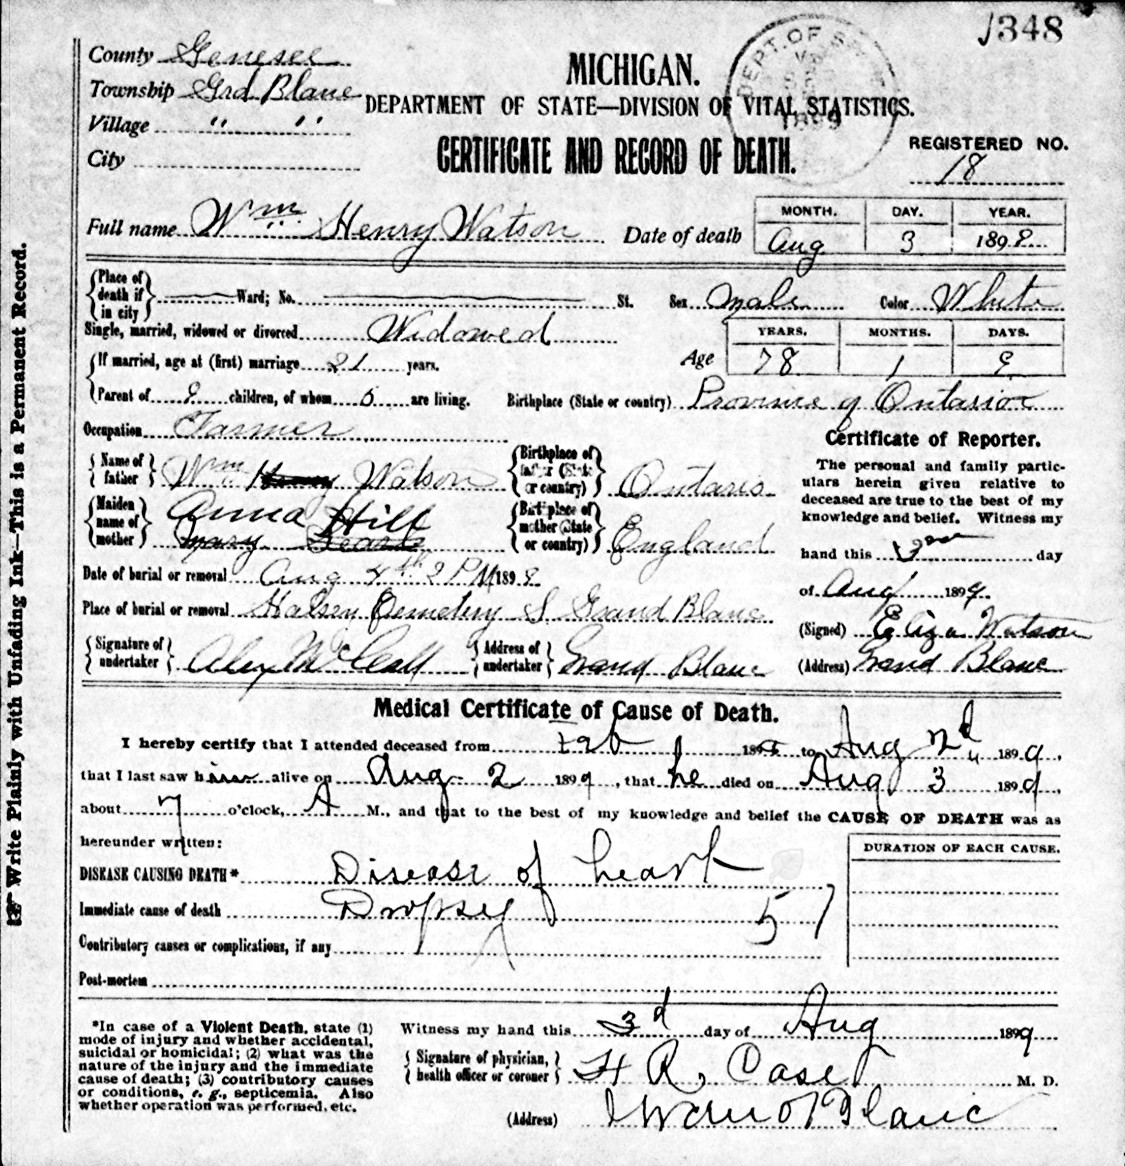 1348
County Genesee
Township Grd Blanc
Village " "
City
MICHIGAN.
DEPARTMENT OF STATE—DIVISION OF VITAL STATISTICS.
CERTIFICATE AND RECORD OF DEATH.
DEPT. OF STATE
1899
REGISTERED NO.
18
Full name Wm Henry Watson Date of death
MONTH. DAY. YEAR.
Aug 3 1899
Place of death if in city Ward; No. St. Sex Male Color White
Single, married, widowed or divorced Widowed
If married, age at (first) marriage 21 years.
Age
YEARS. MONTHS. DAYS.
78 1 9
Parent of 9 children, of whom 6 are living. Birthplace (State or country) Province of Ontario
Occupation Farmer
Name of father Wm Henry Watson Birthplace of father (State or country) Ontario
Maiden name of mother Anna Hill
Mary
Birthplace of mother (State or country) England
Date of burial or removal Aug 4th 2 PM 1899
Place of burial or removal Cemetery S Grand Blanc
Signature of undertaker Alex McCall Address of undertaker Grand Blanc
Certificate of Reporter.
The personal and family partic-
ulars herein given relative to
deceased are true to the best of my
knowledge and belief. Witness my
hand this day
of Aug 1899.
(Signed) Eliza Watson
(Address) Grand Blanc
Medical Certificate of Cause of Death.
I hereby certify that I attended deceased from Feb 189 to Aug 2d 1899.
that I last saw him alive on Aug 2 1899, that he died on Aug 3 1899,
about 7 o'clock, A M., and that to the best of my knowledge and belief the CAUSE OF DEATH was as
hereunder written:
DURATION OF EACH CAUSE.
DISEASE CAUSING DEATH* Disease of heart
Immediate cause of death Dropsy 57
Contributory causes or complications, if any
Post-mortem
*In case of a Violent Death, state (1)
mode of injury and whether accidental,
suicidal or homicidal; (2) what was the
nature of the injury and the immediate
cause of death; (3) contributory causes
or conditions, e. g., septicemia. Also
whether operation was performed, etc.
Witness my hand this 3d day of Aug 1899
Signature of physician, health officer or coroner H R. Case M. D.
(Address) Grand Blanc
Write Plainly with Unfading Ink—This is a Permanent Record.